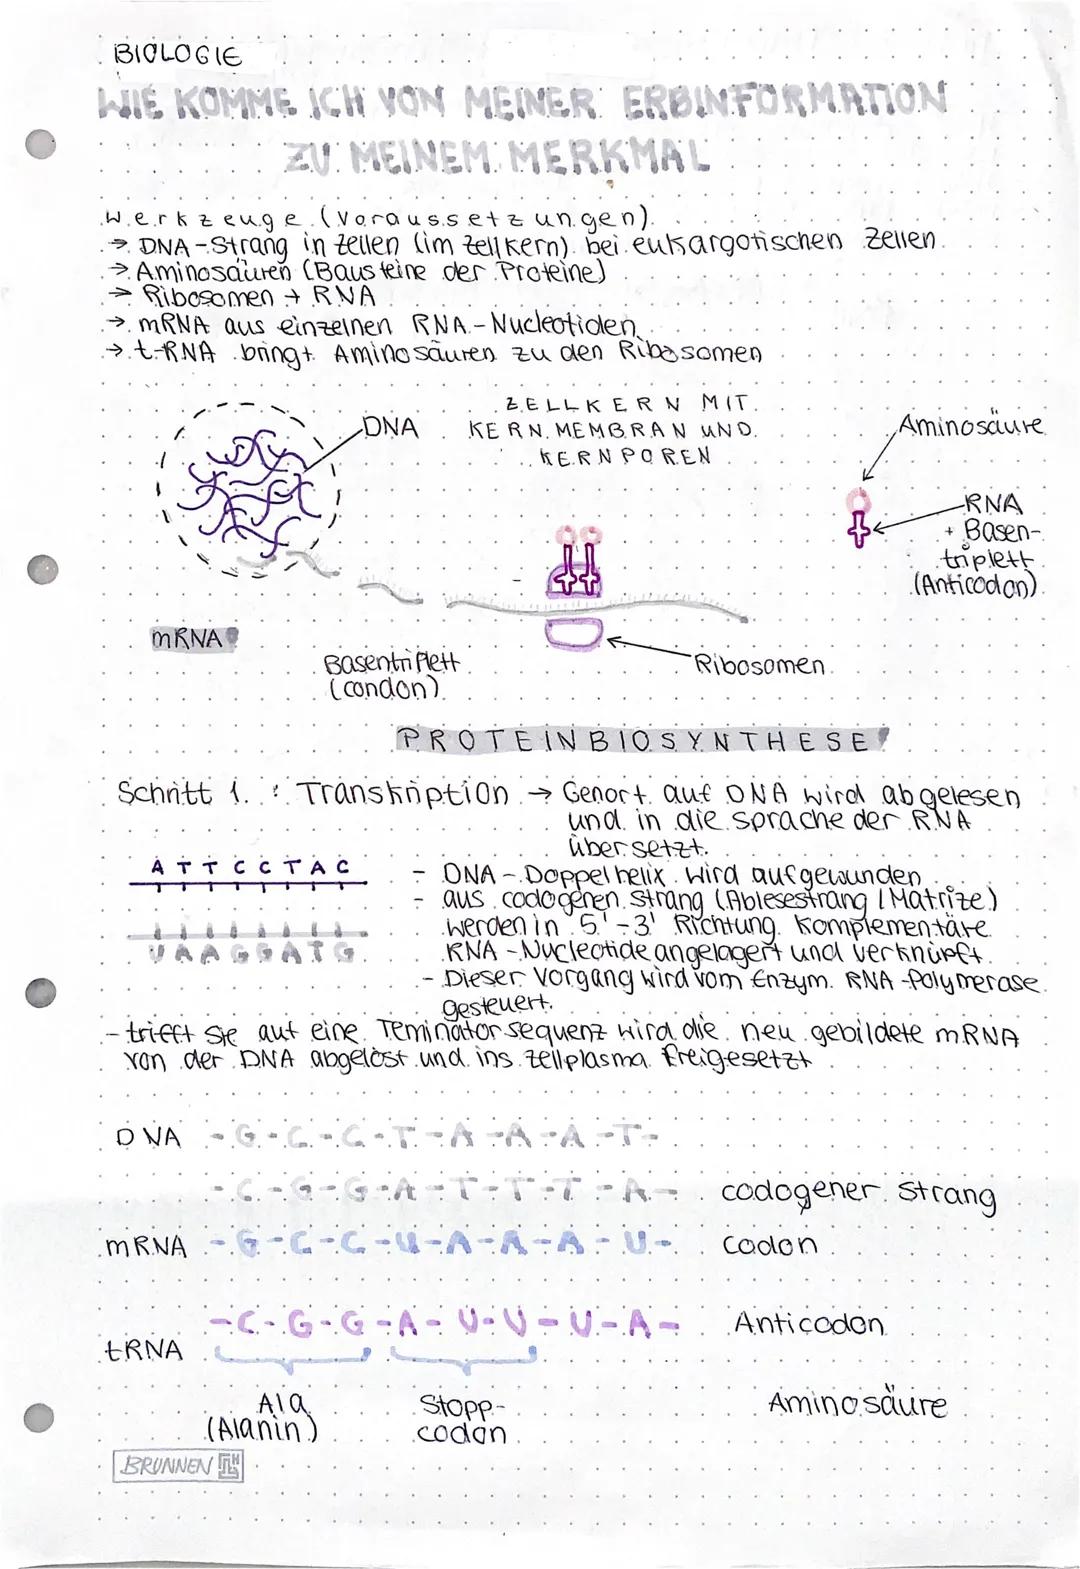 BIOLOGIE
WIE KOMME ICH VON MEINER ERBINFORMATION
ZU MEINEM MERKMAL
Werkzeuge (Voraussetzungen)
→ DNA-Strang in Zellen (im Zellkern) bei eukargotischen Zellen
→ Aminosäuren (Bausteine der Proteine)
→ Ribosomen + RNA
→ mRNA aus einzelnen RNA-Nucleotiden
→ t-RNA bringt Aminosäuren zu den Ribosomen
DNA
ZELLKERN MIT
KERNMEMBRAN UND
KERNPOREN
Aminosäure
RNA
+ Basen-
triplett
(Anticodon)
mRNA
Basentriplett
(condon)
Ribosomen
PROTEINBIOSYNTHESE
Schritt 1. : Transkription → Genort auf DNA wird abgelesen
und in die Sprache der RNA
übersetzt.
A T T C C T A C
U A A G G A T G
- DNA-Doppelhelix wird aufgewunden
- aus codogenen Strang (Ablesestrang / Matrize)
werden in 5'-3' Richtung Komplementäre
RNA-Nucleotide angelagert und verknüpft.
- Dieser Vorgang wird vom Enzym RNA-Polymerase
gesteuert.
- trifft sie auf eine Teminator sequenz wird die neu gebildete mRNA
von der DNA abgelöst und ins Zellplasma freigesetzt
DNA -G-C-C-T-A-A-A-T-
-C-G-G-A-T-T-T-A- codogener Strang
mRNA -G-C-C-U-A-A-A-U- Codon
-C-G-G-A-U-U-U-A- Anticodon
tRNA
Ala Stopp- Aminosäure
(Alanin) codon
BRUNNEN